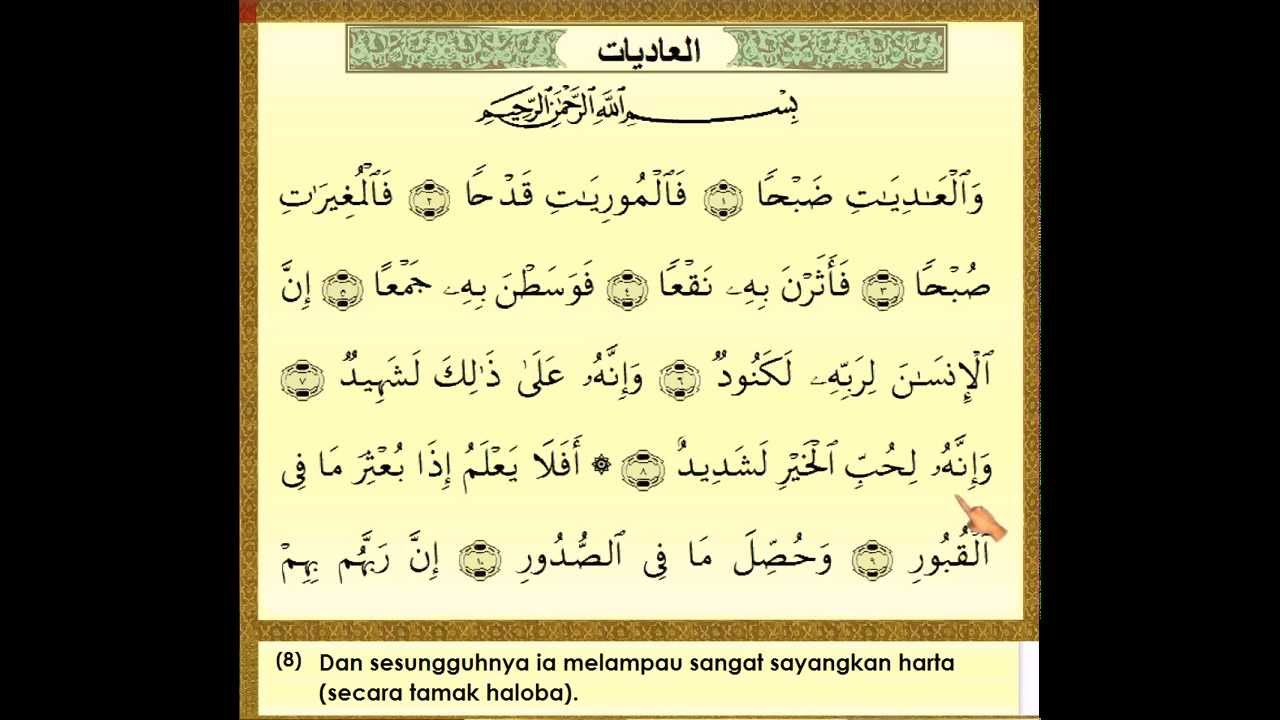 العاديات
بِسْمِ اللَّهِ الرَّحْمَٰنِ الرَّحِيمِ
وَٱلْعَـٰدِيَـٰتِ ضَبْحًا ١ فَٱلْمُورِيَـٰتِ قَدْحًا ٢ فَٱلْمُغِيرَٰتِ
صُبْحًا ٣ فَأَثَرْنَ بِهِۦ نَقْعًا ٤ فَوَسَطْنَ بِهِۦ جَمْعًا ٥ إِنَّ
ٱلْإِنسَـٰنَ لِرَبِّهِۦ لَكَنُودٌ ٦ وَإِنَّهُۥ عَلَىٰ ذَٰلِكَ لَشَهِيدٌ ٧
وَإِنَّهُۥ لِحُبِّ ٱلْخَيْرِ لَشَدِيدٌ ٨ ۞ أَفَلَا يَعْلَمُ إِذَا بُعْثِرَ مَا فِى
ٱلْقُبُورِ ٩ وَحُصِّلَ مَا فِى ٱلصُّدُورِ ١٠ إِنَّ رَبَّهُم بِهِمْ
(8) Dan sesungguhnya ia melampau sangat sayangkan harta
(secara tamak haloba).